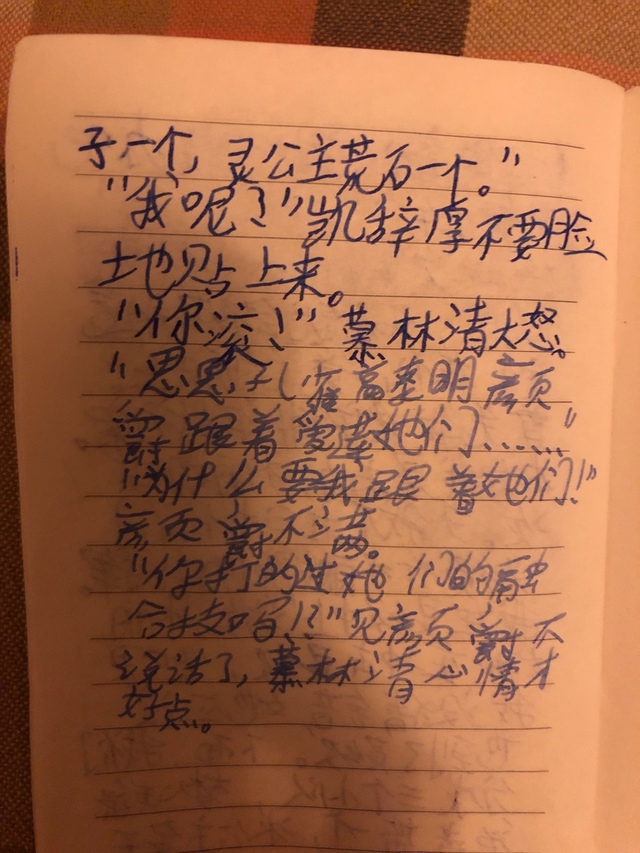 子一个,灵公主荒石一个。”
“我呢?”凯辞厚不要脸
土地贝占上来。
“你滚!”慕林清大怒。
“思思、孔雀、高、明、颜
爵跟着爱莲她们……”
“为什么要我跟着她们!”
颜爵不满。
“你打的过她们的融
合技吗!?”见颜爵不
说话了,慕林清心情才
好点。